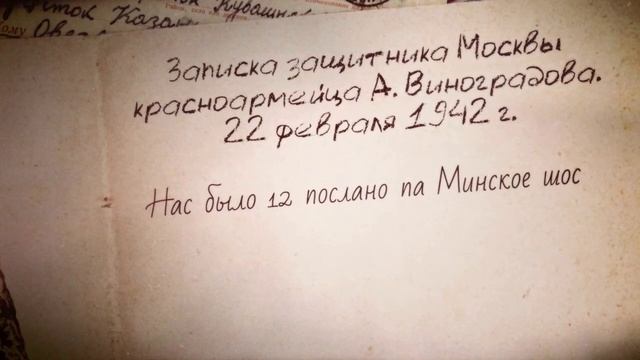 Казан Кувашн
Записка защитника Москвы
красноармейца А. Виноградова.
22 февраля 1942 г.
Нас было 12 послано па Минское шос